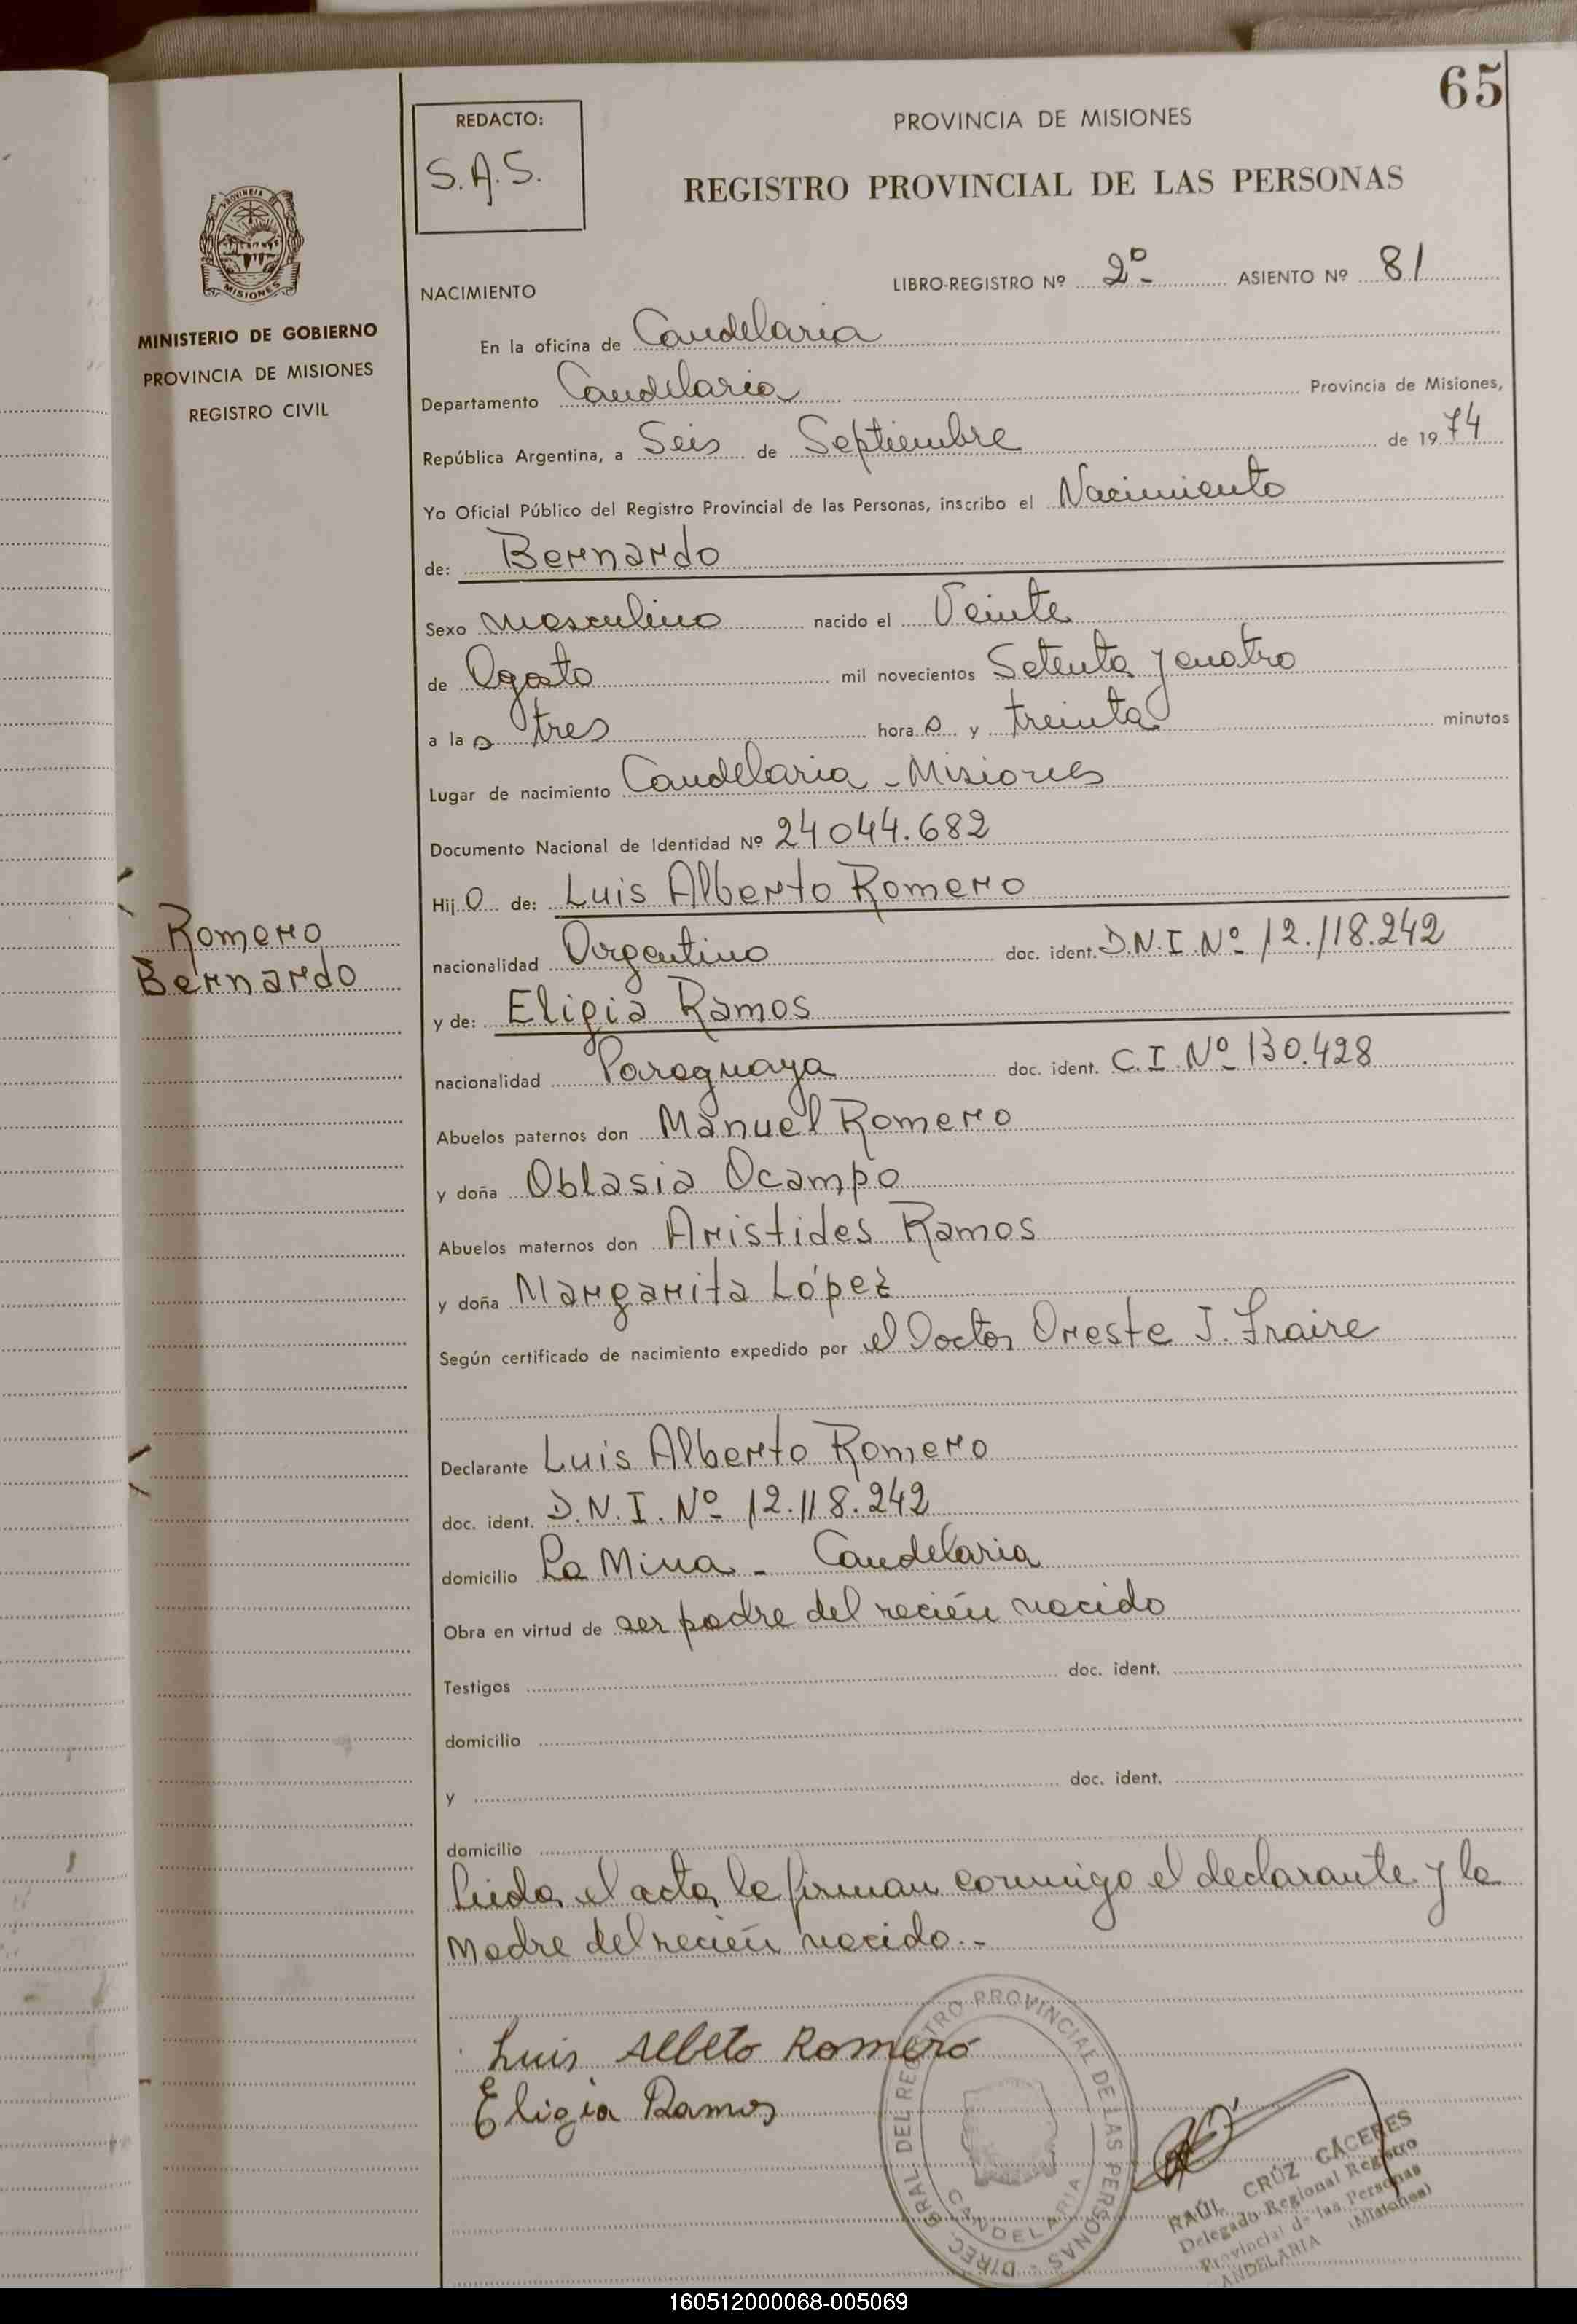 65
REDACTO:
S.A.S.
PROVINCIA DE MISIONES
REGISTRO PROVINCIAL DE LAS PERSONAS
PROVINCIA DE
MISIONES
MINISTERIO DE GOBIERNO
PROVINCIA DE MISIONES
REGISTRO CIVIL
NACIMIENTO
LIBRO-REGISTRO Nº 2º- ASIENTO Nº 81
En la oficina de Candelaria
Departamento Candelaria Provincia de Misiones,
República Argentina, a Seis de Septiembre de 1974
Yo Oficial Público del Registro Provincial de las Personas, inscribo el Nacimiento
de: Bernardo
Sexo masculino nacido el Veinte
de Agosto mil novecientos Setenta y cuatro
a las tres horas y treinta minutos
Lugar de nacimiento Candelaria - Misiones
Documento Nacional de Identidad Nº 24044.682
Hijo de: Luis Alberto Romero
Romero
Bernardo
nacionalidad Argentino doc. ident. D.N.I. Nº 12.118.242
y de: Eligia Ramos
nacionalidad Paraguaya doc. ident. C.I. Nº 130.428
Abuelos paternos don Manuel Romero
y doña Oblasia Ocampo
Abuelos maternos don Aristides Ramos
y doña Margarita López
Según certificado de nacimiento expedido por el Doctor Oreste J. Fraire
Declarante Luis Alberto Romero
doc. ident. D.N.I. Nº 12.118.242
domicilio La Mina - Candelaria
Obra en virtud de ser padre del recién nacido
Testigos doc. ident.
domicilio
y doc. ident.
domicilio
Leída el acta, la firman conmigo el declarante y la
Madre del recién nacido.-
Luis Albeto Romero
Eligia Ramos
DIREC. GRAL. DEL REGISTRO PROVINCIAL DE LAS PERSONAS -
CANDELARIA
RAÚL CRÚZ CÁCERES
Delegado Regional Registro
Provincial de las Personas
ANDELARIA (Misiones)
160512000068-005069